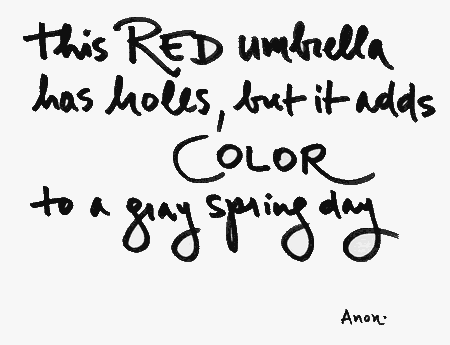 this RED umbrella
has holes, but it adds
COLOR
to a gray spring day
Anon.